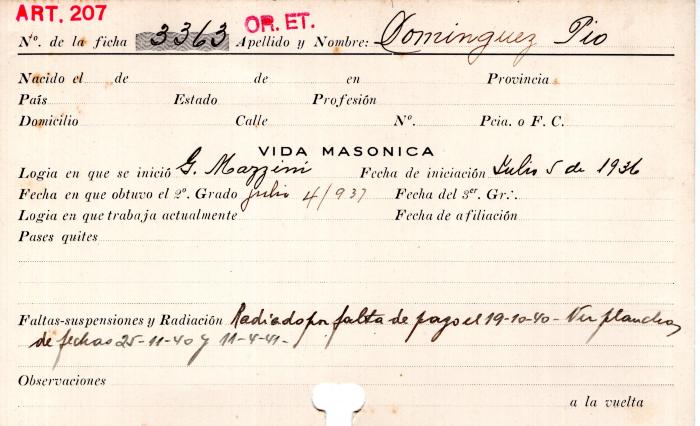 ART. 207
OR. ET.
Nº. de la ficha 3363 Apellido y Nombre: Dominguez Pio
Nacido el de de en Provincia
País Estado Profesión
Domicilio Calle Nº. Pcia. o F. C.
VIDA MASONICA
Logia en que se inició G. Mazzini Fecha de iniciación Julio 5 de 1936
Fecha en que obtuvo el 2º. Grado julio 4/937 Fecha del 3er. Gr∴.
Logia en que trabaja actualmente Fecha de afiliación
Pases quites
Faltas-suspensiones y Radiación Radiado por falta de pago el 19-10-40- Ver planchas
de fechas 25-11-40 y 11-4-41-
Observaciones
a la vuelta